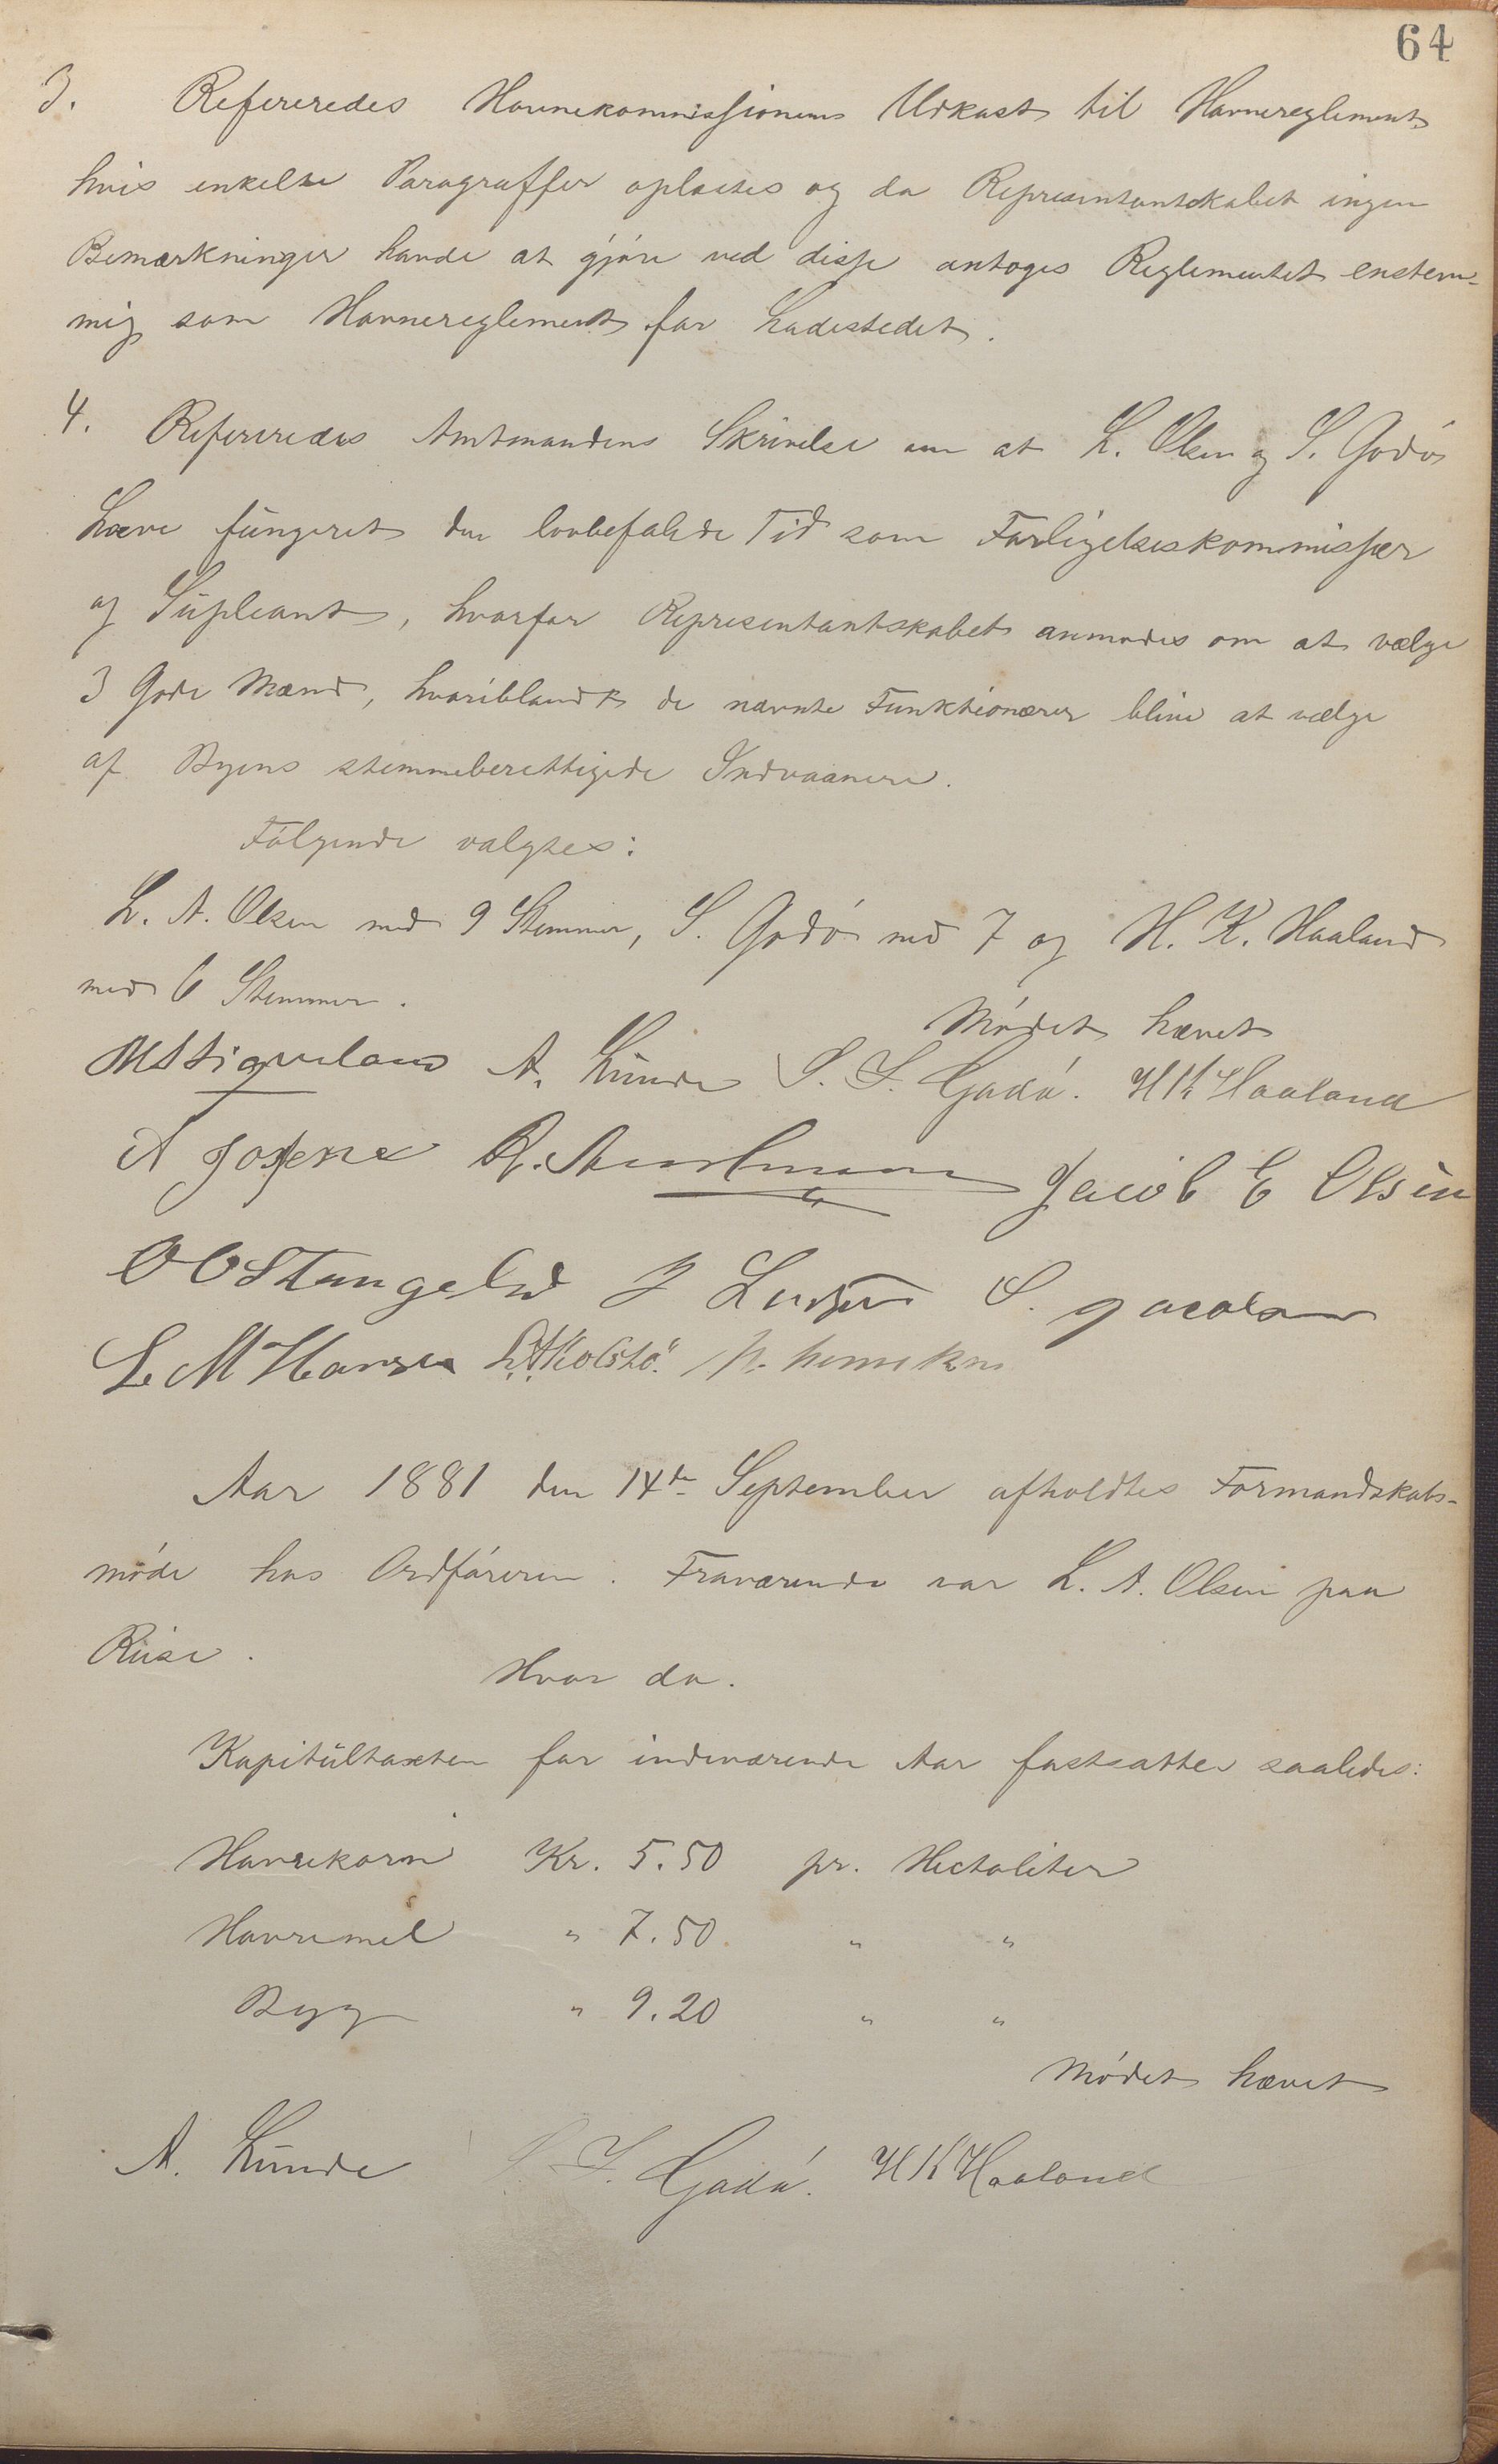 64
3. Refereredes Havnekommissionens Udkast til Havnereglement
hvis enkelte Paragraffer oplæstes og da Representantskabet ingen
Bemærkninger havde at gjøre ved disse antoges Reglementet enstem-
mig som Havnereglement for Ladestedet.
4. Refereredes Amtmandens Skrivelse om at L. Olsen og S. Godø
have fungeret den lovbefalede Tid som Forligelseskommissær
og Supleant, hvorfor Representantskabet anmodes om at vælge
3 Gode Mænd, hvoriblandt de nævnte Funktionærer blive at vælge
af Byens stemmeberettigede Indvaanere.
Følgende valgtes:
L. A. Olsen med 9 Stemmer, S. Godø med 7 og H. K. Haaland
med 6 Stemmer.
Mødet hævet
A. Lunde S. S. Godø. H K Haaland
Jacob E Olsen
O O Stangeland S. Jacobsen
L. M Hansen
Aar 1881 den 14de September afholdtes Formandskabs-
møde hos Ordføreren. Fraværende var L. A. Olsen paa
Reise.
Hvor da.
Kapitültaxten for indeværende Aar fastsattes saaledes:
Havrekorn Kr. 5.50 pr. Hectoliter
Havremel " 7.50 " "
Byg " 9.20 " "
Mødet hævet
A. Lunde S. S. Godø. H K Haaland